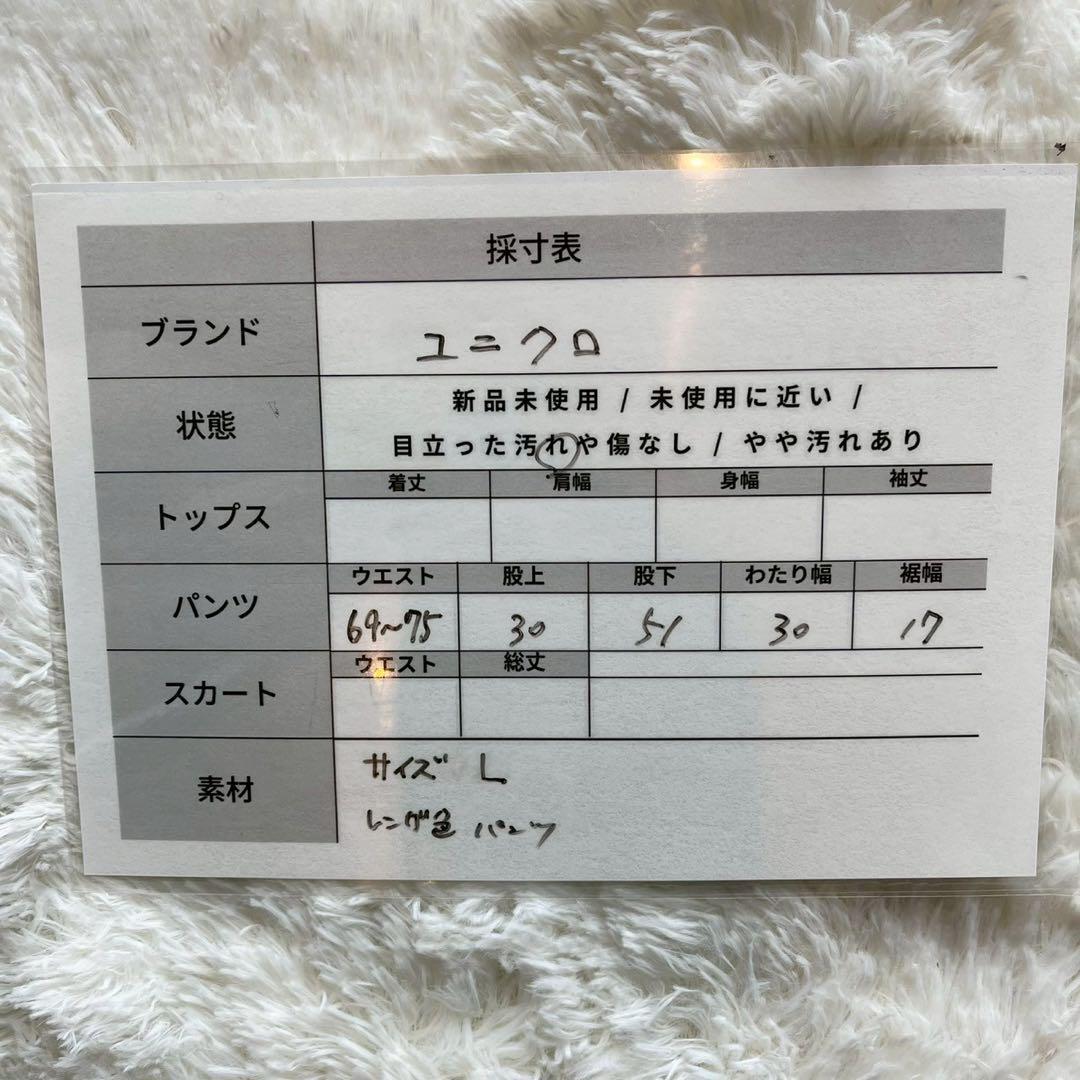 採寸表
ブランド
ユニクロ
状態
新品未使用 / 未使用に近い /
目立った汚れや傷なし / やや汚れあり
トップス
着丈 肩幅 身幅 袖丈
パンツ
ウエスト 股上 股下 わたり幅 裾幅
69~75 30 51 30 17
スカート
ウエスト 総丈
素材
サイズ L
レンガ色 パンツ